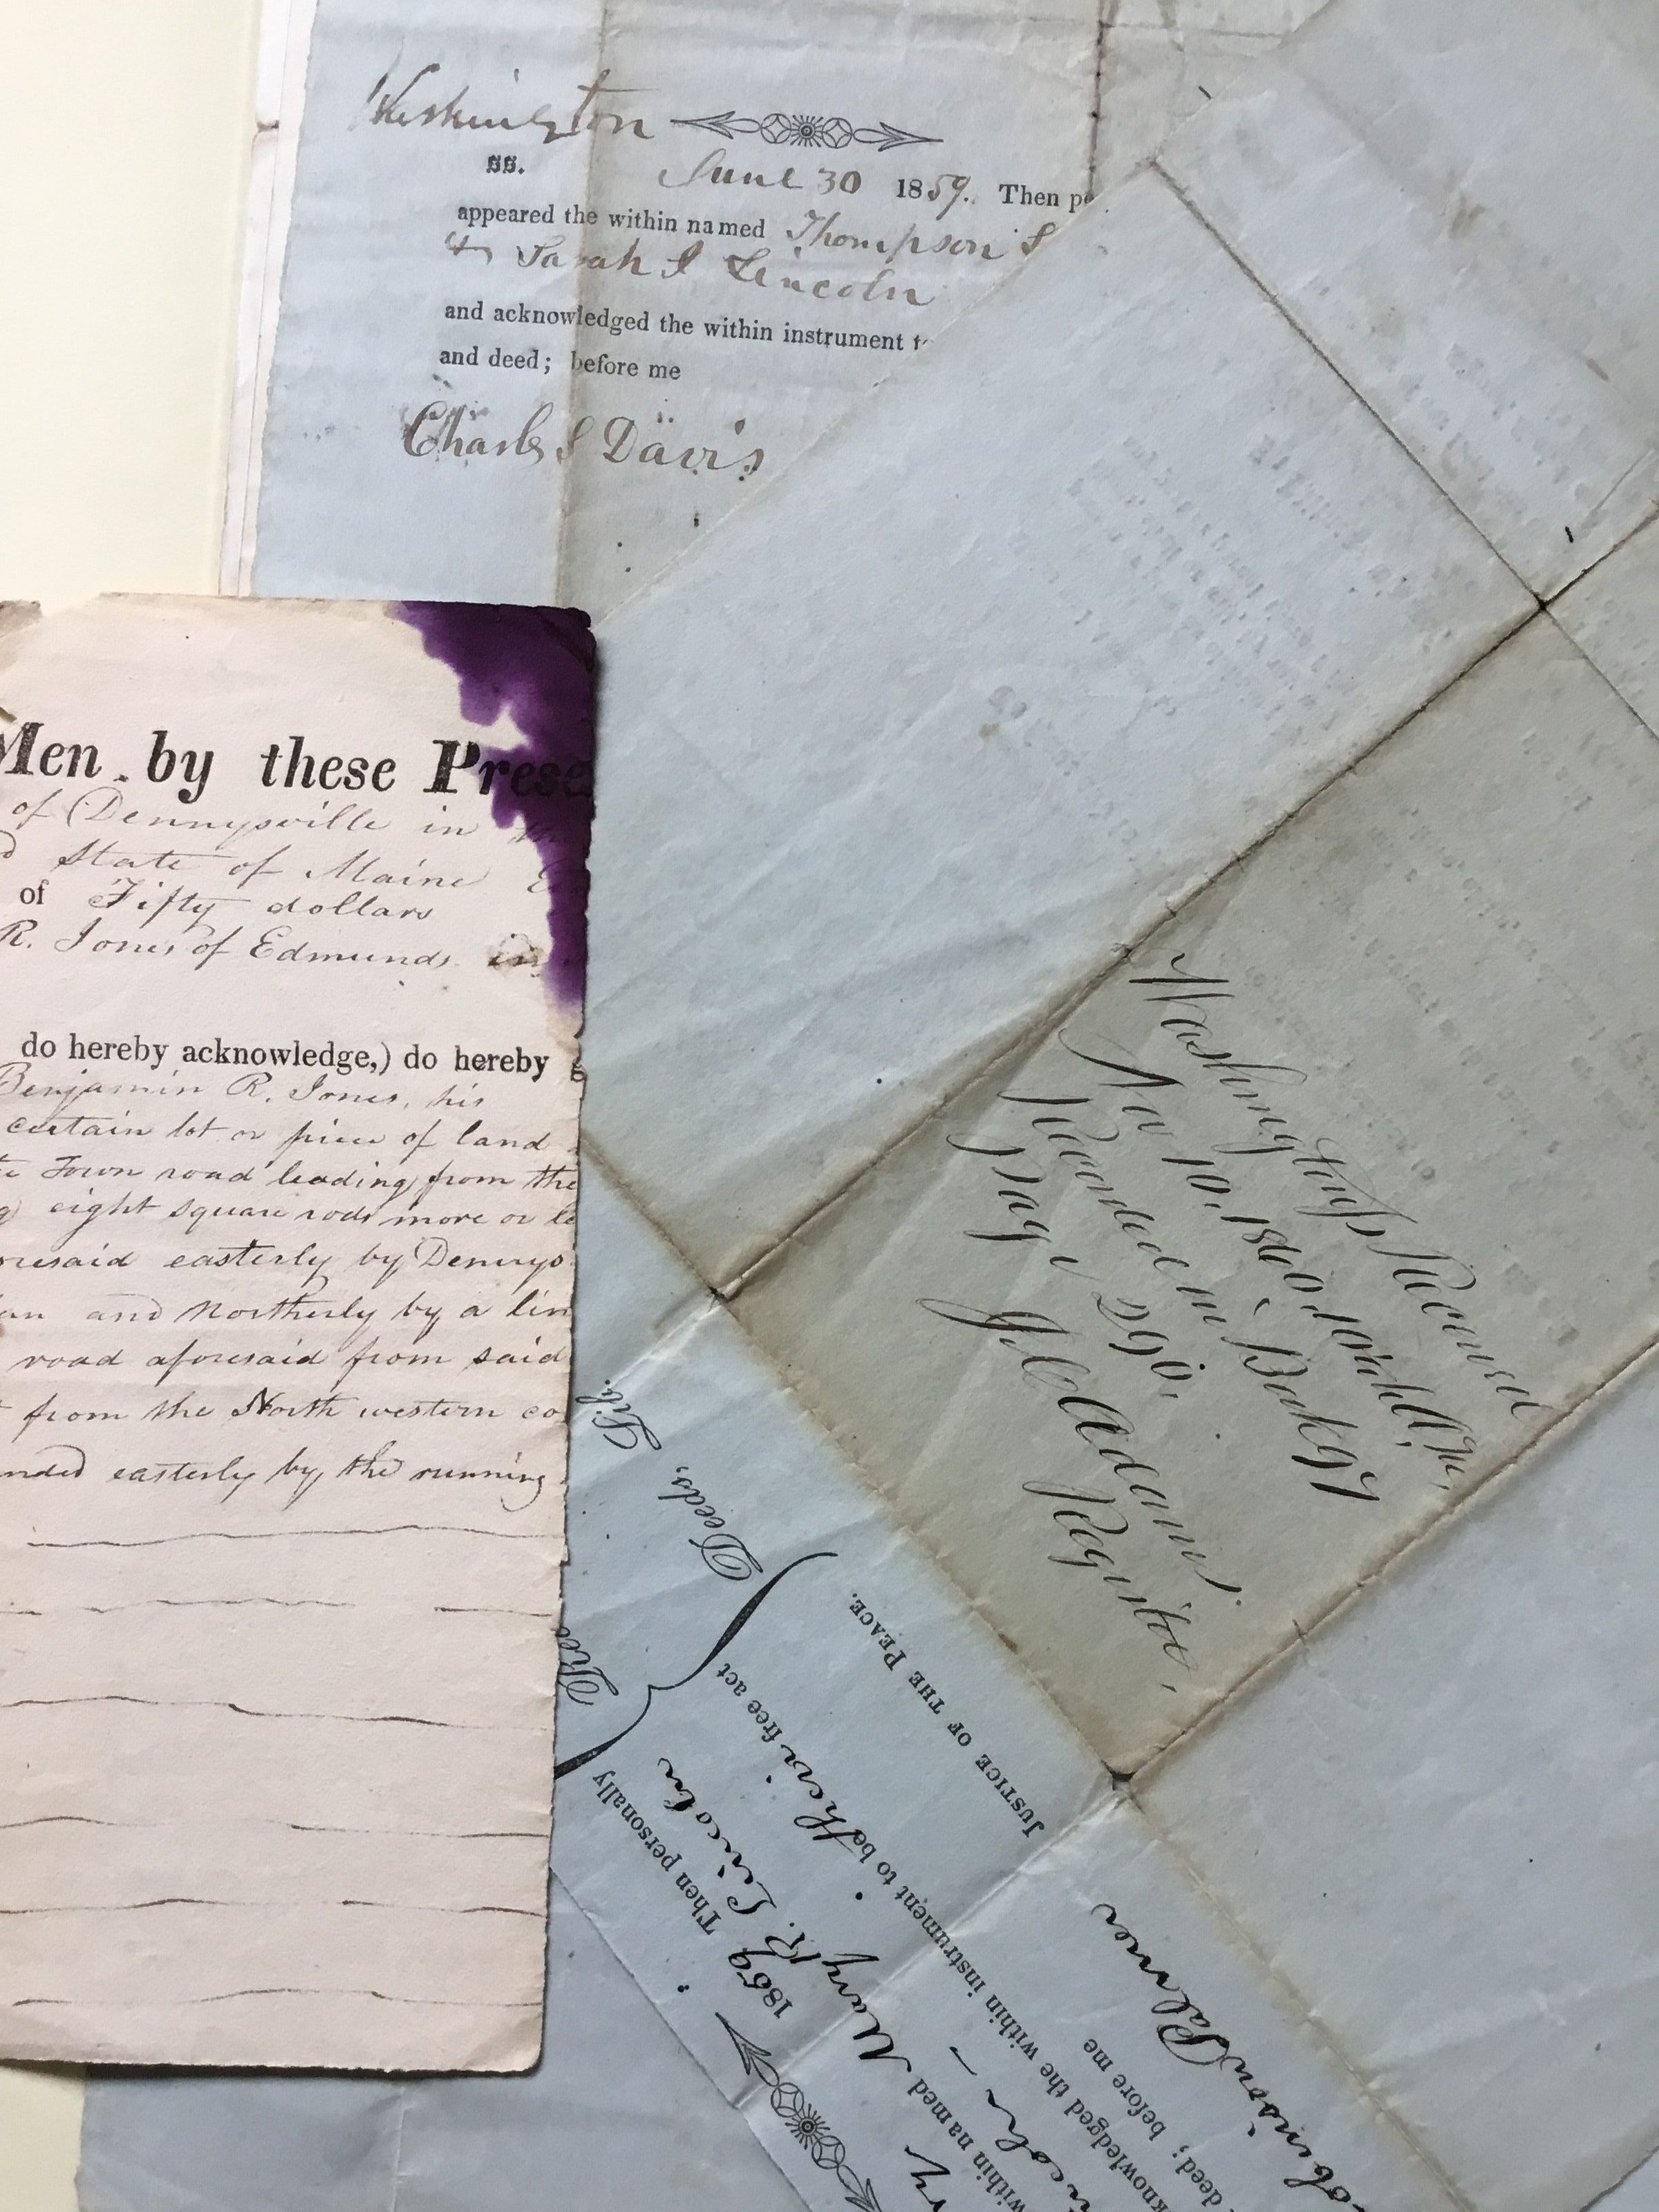 Washington
ss.
June 30 1859. Then pe
appeared the within named Thompson
& Sarah S Lincoln
and acknowledged the within instrument t
and deed; before me
Charles S Davis
Men by these Prese
of Dennysville in
State of Maine
of Fifty dollars
R. Jones of Edmunds in
do hereby acknowledge,) do hereby g
Benjamin R. Jones, his
certain lot or piece of land
Town road leading from the
eight square rods more or le
oresaid easterly by Dennys
and Northerly by a lin
road aforesaid from said
from the North western co
nded easterly by the running
Washington ss Received
10, 1860, 10h A.M.
Recorded in Book 97
Page 290.
J C Adams
Register.
Deeds, Lib.
Rec
1859 Then personally
within named Mary R. Lincoln
coln
knowledged the within instrument to be their free act
deed; before me
obinson Palmer
JUSTICE OF THE PEACE.